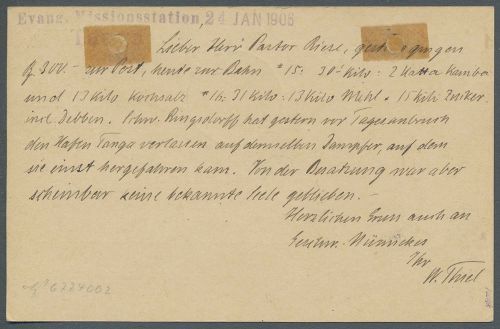 Evang. Missionsstation, 24 JAN 1906
Lieber Herr Pastor Riese, gestern gingen
R 300.- zur Post, heute zur Bahn #15: 30 Kilo: 2 Katta Kamba
und 13 Kilo Kochsalz #16: 31 Kilo: 13 Kilo Mehl + 15 Kilo Zucker
incl Debben. Schw. Ringsdorff hat gestern vor Tagesanbruch
den Hafen Tanga verlassen auf demselben Dampfer, auf dem
sie einst hergefahren kam. Von der Besatzung war aber
scheinbar keine bekannte Seele geblieben. -
Herzlichen Gruss auch an
Geschw. Münnich
Ihr
W. Thiel